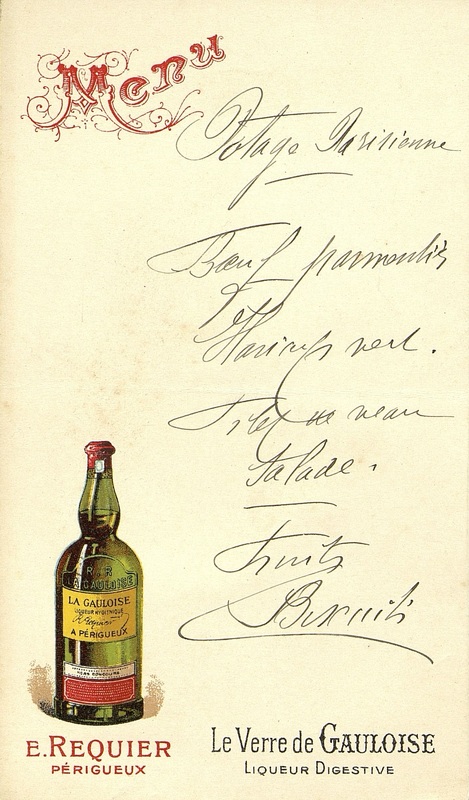 Menu
Potage Parisienne
Bœuf parmentier
Haricots vert.
Filet de veau
Salade.
Fruits
Biscuits
R·R
LA GAULOISE
LA GAULOISE
LIQUEUR HYGIÉNIQUE
E. Requier
A PÉRIGUEUX
E. REQUIER
PÉRIGUEUX
Le Verre de GAULOISE
LIQUEUR DIGESTIVE